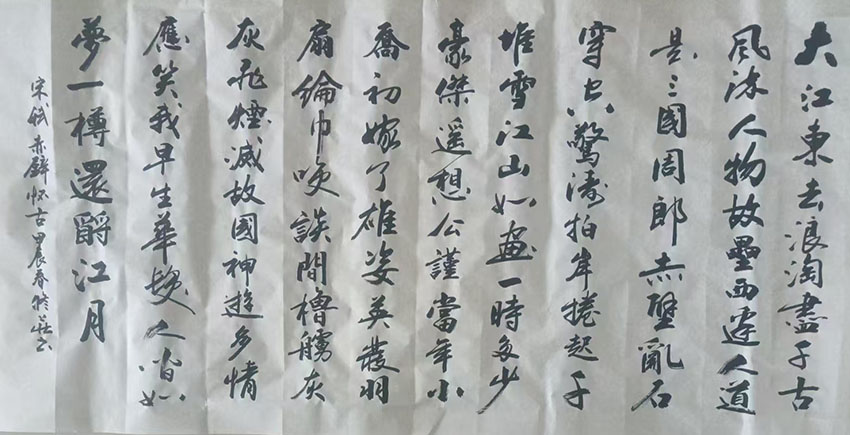 大江東去浪淘盡千古
風流人物故壘西邊人道
是三國周郎赤壁亂石
穿空驚濤拍岸捲起千
堆雪江山如畫一時多少
豪傑遥想公謹當年小
喬初嫁了雄姿英發羽
扇綸巾談間檣艣灰
灰飛煙滅故國神遊多情
應笑我早生華髮人間如
夢一樽還爵江月
宋軾赤壁怀古甲辰春書